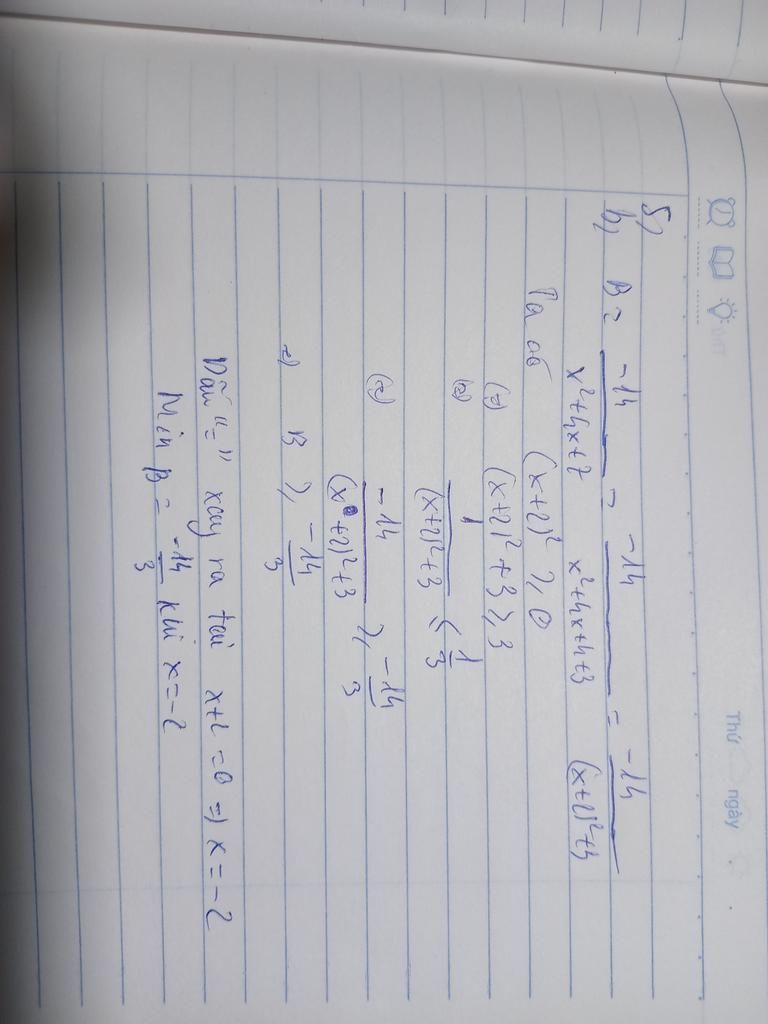 Thứ ngày
5,)
b, B = -14/(x²+4x+7) = -14/(x²+4x+4+3) = -14/((x+2)²+3)
Ta có (x+2)² ≥ 0
(=) (x+2)² + 3 ≥ 3
(=) 1/((x+2)²+3) ≤ 1/3
(=) -14/((x+2)²+3) ≥ -14/3
=) B ≥ -14/3
Dấu "=" xảy ra tại x+2 = 0 =) x = -2
Min B = -14/3 khi x = -2